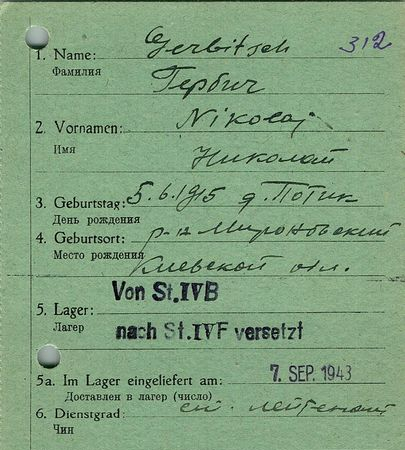 Gerbitsch 312
1. Name:
Фамилия Гербич
2. Vornamen: Nikolaj
Имя Николай
3. Geburtstag: 5.6.1915 д. Потик
День рождения
4. Geburtsort: р-на Мироновский
Место рождения Киевской обл.
Von St.IVB
5. Lager:
Лагер nach St.IVF versetzt
5a. Im Lager eingeliefert am: 7. SEP. 1943
Доставлен в лагер (число)
6. Dienstgrad: лейтенант
Чин